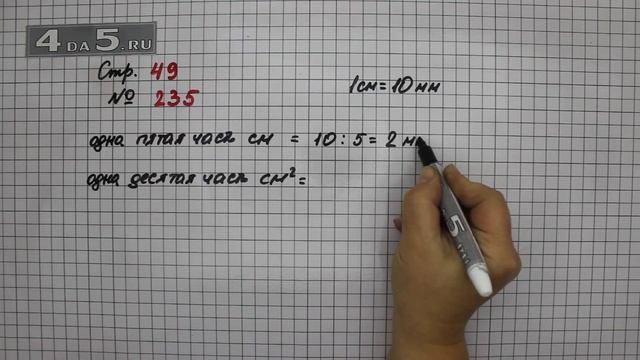 4 DA 5.RU
Стр. 49
1 см = 10 мм
№ 235
одна пятая часть см = 10 : 5 = 2 м
одна десятая часть см² =
5